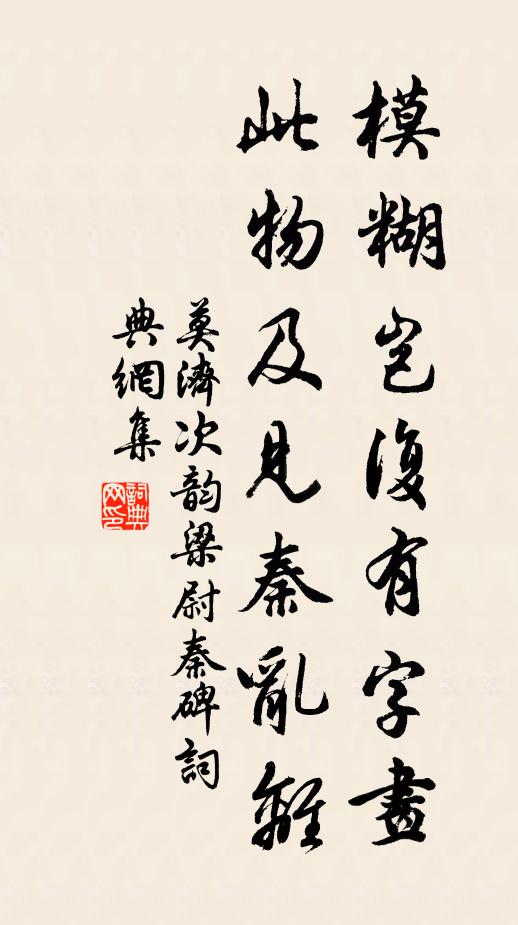 模糊豈復有字畫
此物及見秦亂離
莫濟次韵梁尉秦碑詞
典網集
詞典網印